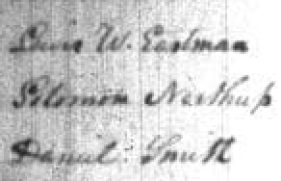 Lewis W. Eastman
Solomon Northup
Daniel Smith